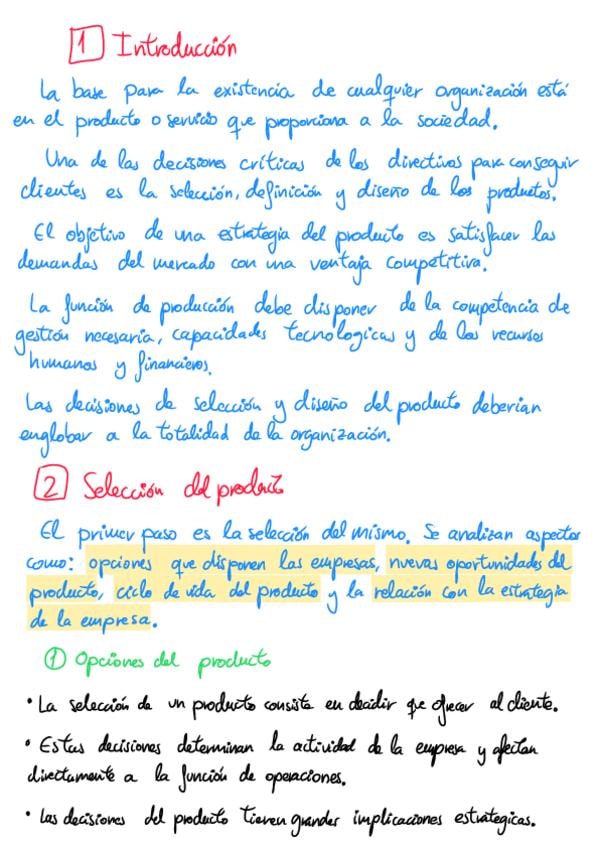 1 Introducción
La base para la existencia de cualquier organización está
en el producto o servicio que proporciona a la sociedad.
Una de las decisiones críticas de los directivos para conseguir
clientes es la selección, definición y diseño de los productos.
El objetivo de una estrategia del producto es satisfacer las
demandas del mercado con una ventaja competitiva.
La función de producción debe disponer de la competencia de
gestión necesaria, capacidades tecnologicas y de los recursos
humanos y financieros.
Las decisiones de selección y diseño del producto deberian
englobar a la totalidad de la organización.
2 Selección del producto
El primer paso es la selección del mismo. Se analizan aspectos
como: opciones que disponen las empresas, nuevas oportunidades del
producto, ciclo de vida del producto y la relación con la estrategia
de la empresa.
1 Opciones del producto
• La selección de un producto consiste en decidir que ofrecer al cliente.
• Estas decisiones determinan la actividad de la empresa y afectan
directamente a la función de operaciones.
• Las decisiones del producto tienen grandes implicaciones estrategicas.